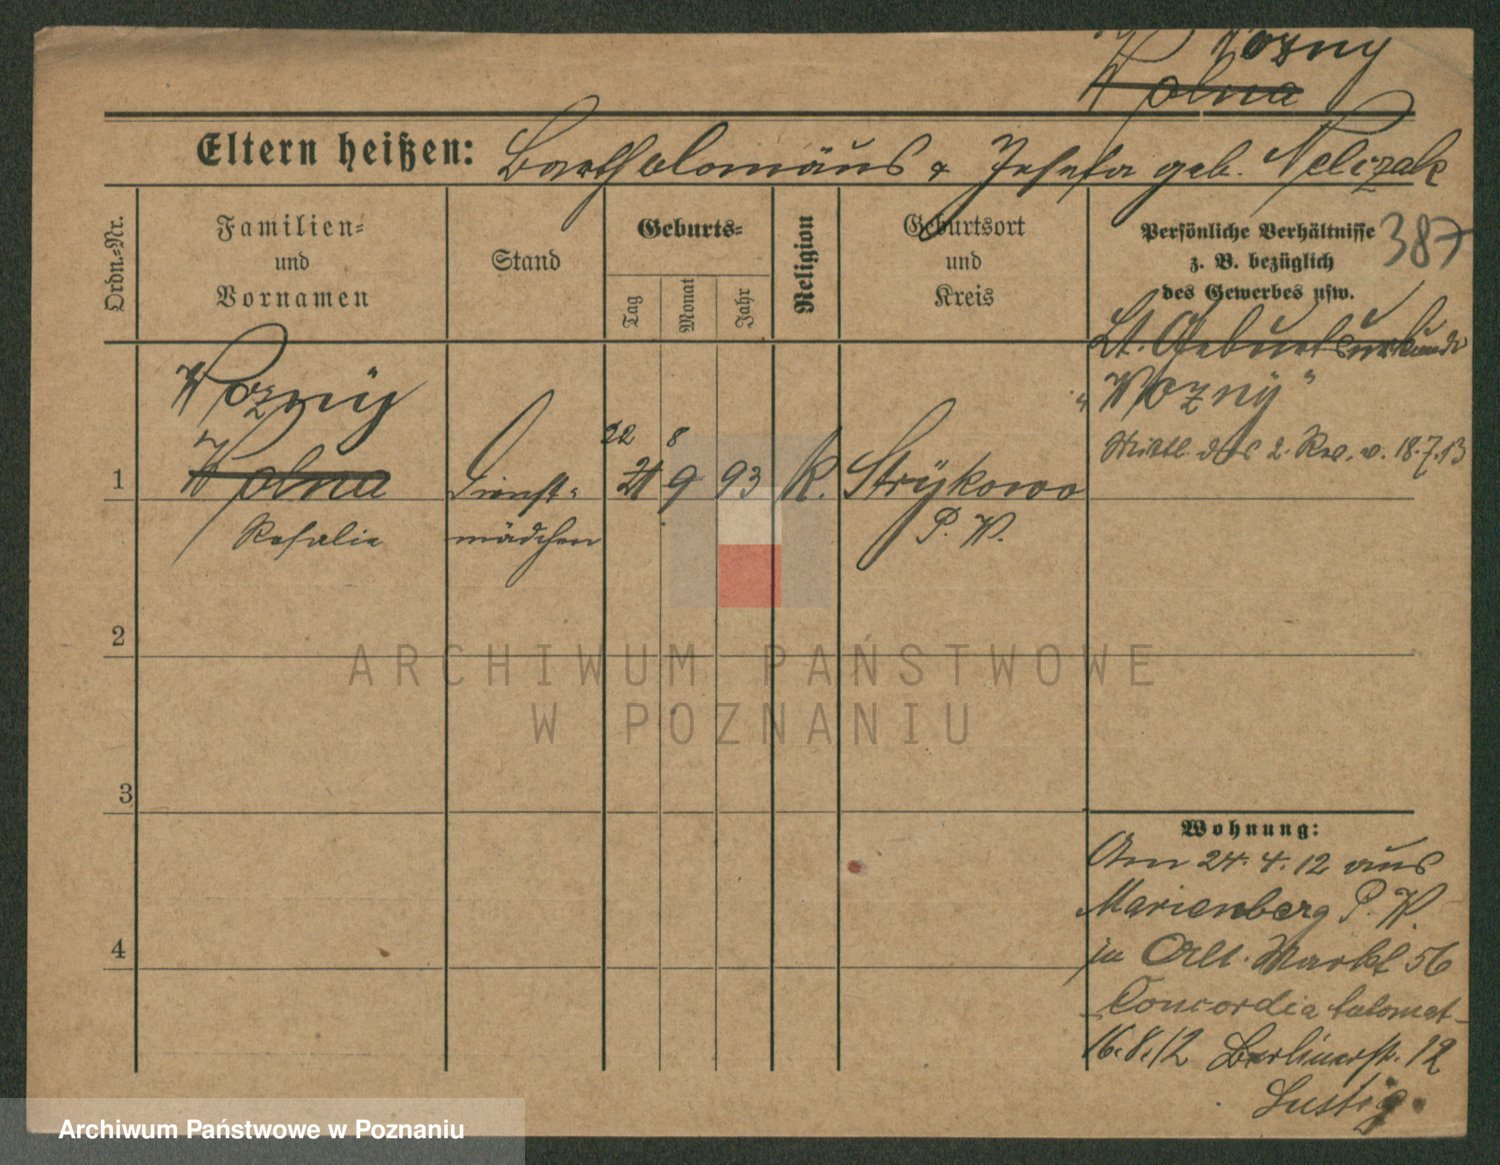 Wozny
Wolna
Eltern heißen: Bartholomäus & Josefa geb. Nelczak
Ordn.-Nr.
Familien-
und
Vornamen
Stand
Geburts-
Tag
Monat
Jahr
Religion
Geburtsort
und
Kreis
Persönliche Verhältnisse
z. B. bezüglich
des Gewerbes usw.
387
Lt. Geburtsurkunde
"Wozny"
d. 2. Rev. v. 18.7.13
Wozny
22 8
1 Wolna Dienst- 21 9 93 K. Strykowo
Rosalie mädchen P. W.
2
3
4
Wohnung:
Am 24.4.12 aus
Marienberg P. W.
in Alt. Markt 56
Concordia
16.8.12 Berlinerstr. 12
Lustig.
ARCHIWUM PAŃSTWOWE
W POZNANIU
Archiwum Państwowe w Poznaniu